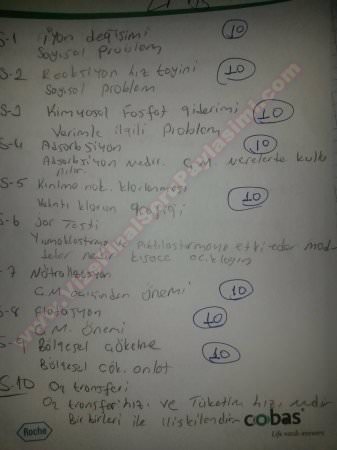 S-1 iyon değişimi 10
Sayısal Problem
S-2 Reaksiyon hız tayini 10
Sayısal problem
S-3 Kimyasal Fosfat giderimi 10
Verimle ilgili Problem
S-4 Adsorbsiyon 10
Adsorbsiyon nedir. Ç.M nerelerde kulla
nılır
S-5 Kırılma nok. klorlanması
Kalıntı kloran grafiği 10
S-6 Jar Testi
Yumaklaştırma ki Pıhtılaştırmaya etki eder mad-
deler nedir kısaca açıklayın
-7 Nötralizasyon
Ç.M açısından önemi 10
S-8 Flotasyon 10
Ç.M. önemi
S-9 Bölgesel Çökelme 10
Bölgesel çök. anlat
S-10 O2 transferi
O2 transfer hız. ve Tüketim hız. nedir
Birbirleri ile ilişkilendir
Roche
cobas
Life needs answers
www.VizeFinalSoruPaylasimi.com